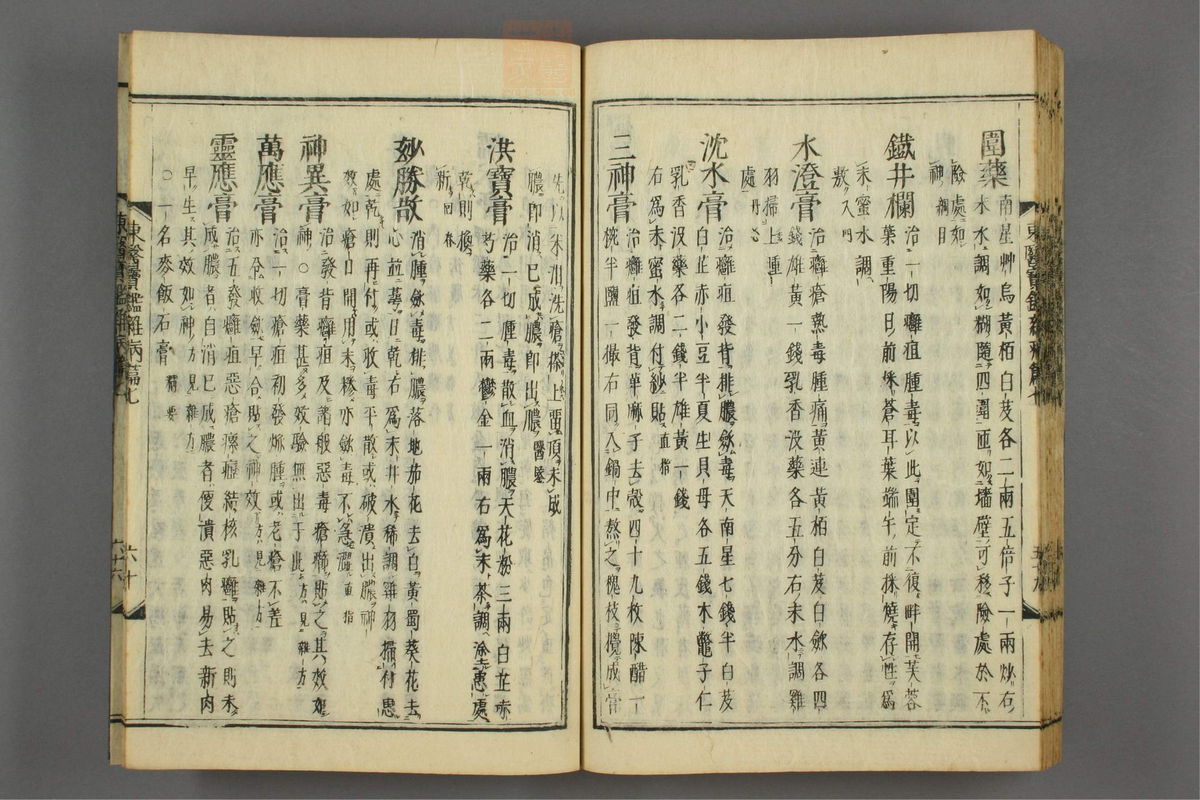 圍藥 南星艸烏黃栢白芨各二兩五倍子一兩炒右
末水調如糊隨四圍匝如墻壁可移險處於不
險處如神 綱目
鐵井欄 治一切癰疽腫毒以此圍定不復畔開芙蓉
葉重陽日前採蒼耳葉端午前採燒存性爲
末蜜水調
敷 入門
水澄膏 治癰瘡熱毒腫痛黃連黃栢白芨白斂各四
錢雄黃一錢乳香沒藥各五分右末水調雞
羽掃上腫
處 丹心
沈水膏 治癰疽發背排膿斂毒天南星七錢半白芨
白芷赤小豆半夏生貝母各五錢木鼈子仁
乳香沒藥各二錢半雄黃一錢
右爲末蜜水調付紗貼 直指
三神膏 治癰疽發背萆麻子去殼四十九枚陳醋一
椀半鹽一撮右同入鍋中熬之槐枝攪成膏
先以米泔洗瘡搽上留頂未成
膿卽消已成膿卽出膿 醫鑒
洪寶膏 治一切腫毒散血消膿天花粉三兩白芷赤
芍藥各二兩鬱金一兩右爲末茶調冷塗患處
乾則換
新 回春
妙勝散 消腫斂毒排膿落地茄花去白黃蜀葵花去
心並萼日乾右爲末井水稀調雞羽掃付患
處乾則再付或收毒平散或破潰出膿神
效如瘡口開用末糝亦斂毒不急 直指
神異膏 治發背癰疽及諸般惡毒瘡癤貼之其效如
神〇膏藥甚多效驗無出于此 方見雜方
萬應膏 治一切瘡疽初發焮腫或老瘡不差
亦全收斂早合貼之神效 方見雜方
靈應膏 治五發癰疽惡瘡瘰癧結核乳癰貼之則未
成膿者自消已成膿者便潰惡肉易去新肉
早生其效如神 方見雜方
〇一名麥飯石膏 精要
東醫寶鑑雜病篇七
六十